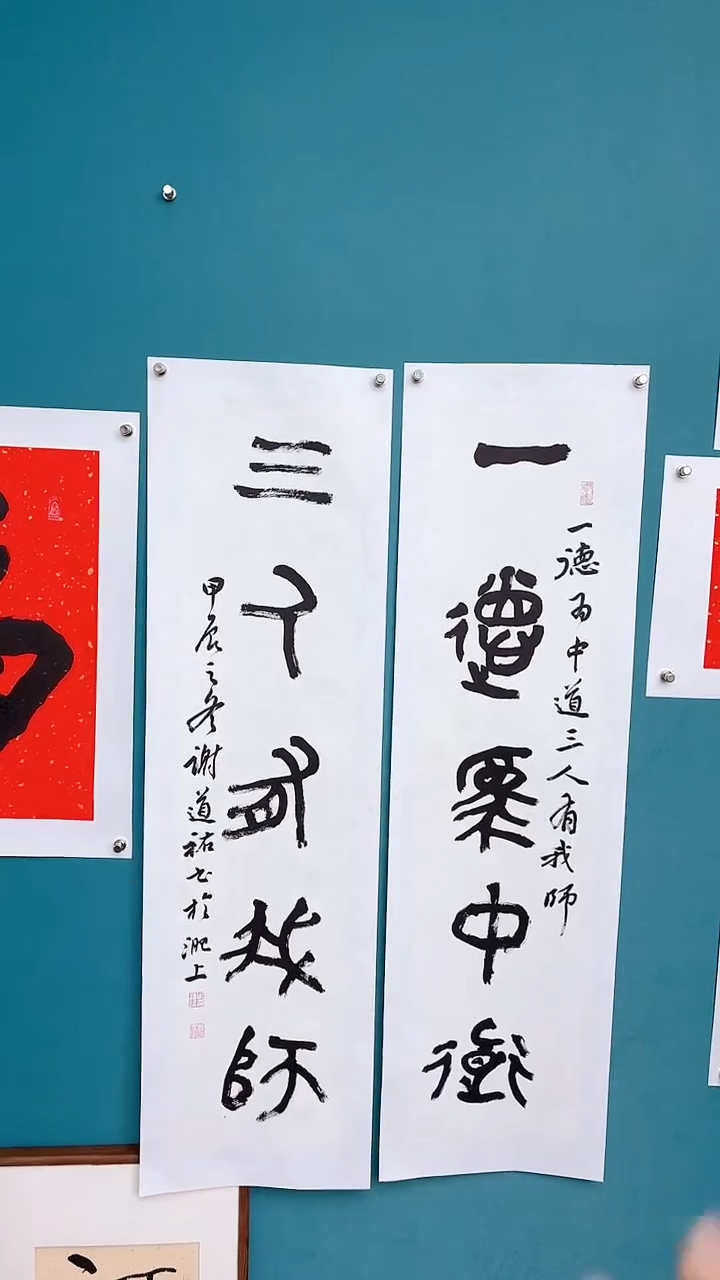 一德为中道
一德为中道三人有我师
三人有我师
甲辰之冬谢道祐书于淝上